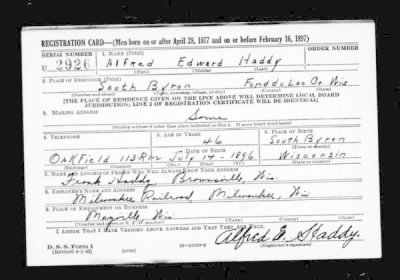 REGISTRATION CARD—(Men born on or after April 28, 1877 and on or before February 16, 1897)
SERIAL NUMBER 1. NAME (Print) ORDER NUMBER
U 2926 Alfred Edward Haddy
(First) (Middle) (Last)
2. PLACE OF RESIDENCE (Print)
South Byron Fond du Lac Co. Wis
(Number and street) (Town, township, village, or city) (County) (State)
[THE PLACE OF RESIDENCE GIVEN ON THE LINE ABOVE WILL DETERMINE LOCAL BOARD
JURISDICTION; LINE 2 OF REGISTRATION CERTIFICATE WILL BE IDENTICAL]
3. MAILING ADDRESS
Same
[Mailing address if other than place indicated on line 2. If same insert word same]
4. TELEPHONE 5. AGE IN YEARS 6. PLACE OF BIRTH
46 South Byron
DATE OF BIRTH (Town or county)
Oakfield 113R12 July 14 - 1896 Wisconsin
(Exchange) (Number) (Mo.) (Day) (Yr.) (State or country)
7. NAME AND ADDRESS OF PERSON WHO WILL ALWAYS KNOW YOUR ADDRESS
Frank Haddy, Brownsville, Wis.
8. EMPLOYER'S NAME AND ADDRESS
Milwaukee Railroad, Milwaukee, Wis
9. PLACE OF EMPLOYMENT OR BUSINESS
Mayville, Wis.
(Number and street or R. F. D. number) (Town) (County) (State)
I AFFIRM THAT I HAVE VERIFIED ABOVE ANSWERS AND THAT THEY ARE TRUE.
D. S. S. Form 1
(Revised 4-1-42) (over) Alfred E. Haddy.
(Registrant's signature)